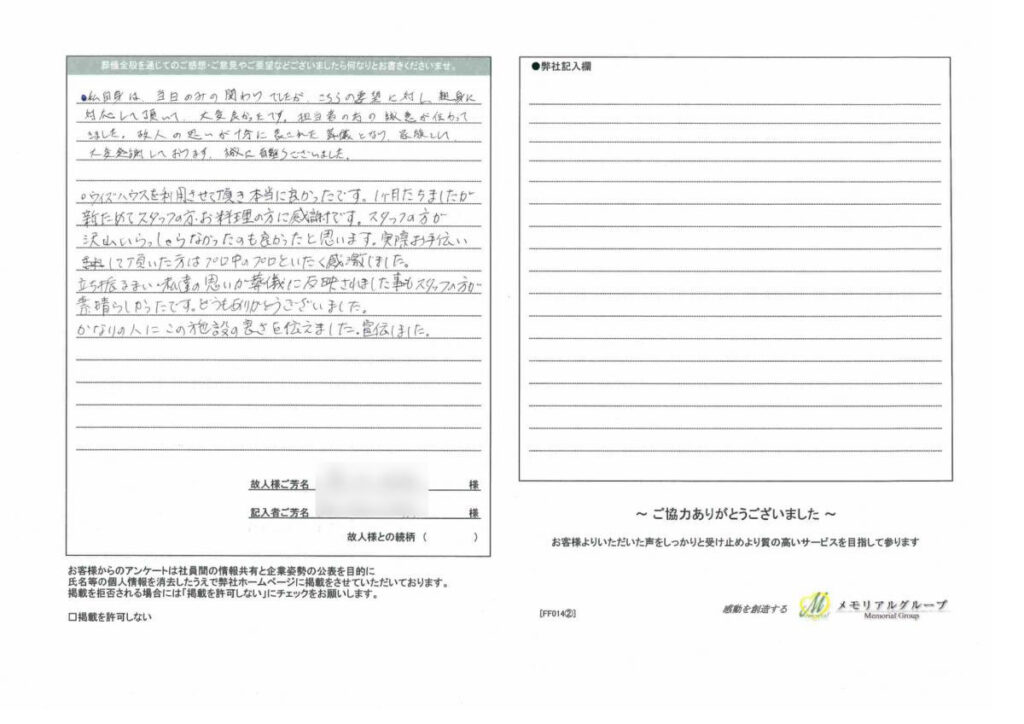 葬儀全般を通じてのご感想・ご意見やご要望などございましたら何なりとお書きくださいませ。
●私自身は、当日のみの関わりでしたが、こちらの要望に対し、親身に
対応して頂いて、大変良かったです。担当者の方の誠意が伝わって
きました。故人の思いが十分に表された葬儀となり、家族として
大変感謝しております。誠に有難うございました。
○ウィズハウスを利用させて頂き本当に良かったです。1ヶ月たちましたが
新ためてスタッフの方・お料理の方に感謝です。スタッフの方が
沢山いらっしゃらなかったのも良かったと思います。実際お手伝い
して頂いた方はプロ中のプロといたく感激しました。
立ち振るまい・私達の思いが葬儀に反映されました事もスタッフの方が
素晴らしかったです。どうもありがとうございました。
かなりの人にこの施設の良さを伝えました。宣伝しました。
故人様ご芳名 様
記入者ご芳名 様
故人様との続柄 ( )
お客様からのアンケートは社員間の情報共有と企業姿勢の公表を目的に
氏名等の個人情報を消去したうえで弊社ホームページに掲載をさせていただいております。
掲載を拒否される場合には「掲載を許可しない」にチェックをお願いします。
□掲載を許可しない
●弊社記入欄
～ ご協力ありがとうございました ～
お客様よりいただいた声をしっかりと受け止めより質の高いサービスを目指して参ります
[FF014②]
感動を創造する
M
Memorial
メモリアルグループ
Memorial Group